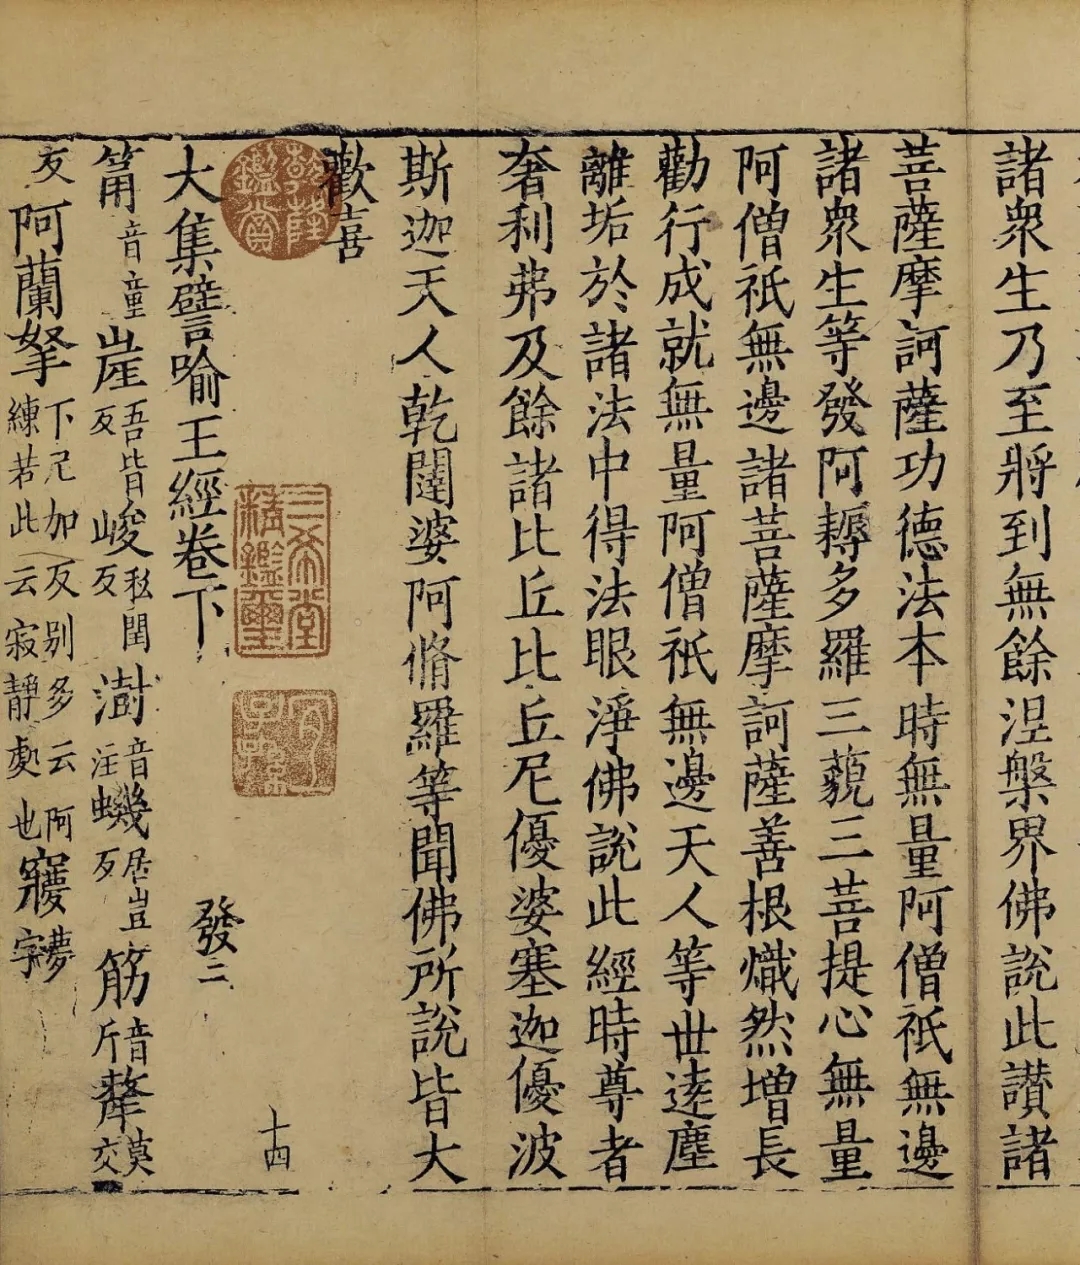 諸衆生乃至將到無餘涅槃界佛說此讃諸
菩薩摩訶薩功德法本時無量阿僧祇無邊
諸衆生等發阿耨多羅三藐三菩提心無量
阿僧祇無邊諸菩薩摩訶薩善根熾然增長
勸行成就無量阿僧祇無邊天人等世逺塵
離垢於諸法中得法眼淨佛說此經時尊者
奢利弗及餘諸比丘比丘尼優婆塞迦優波
斯迦天人乾闥婆阿脩羅等聞佛所說皆大
歡喜
乾隆鑑賞
三希堂精鑑璽
宜子孫
大集譬喻王經卷下
發二
十四
筩音童崖吾皆反峻私閏反澍音注蟣居豈反筋音斤犛莫交
反阿蘭拏下尼加反別多云阿練若此云寂靜處也㝱夢字